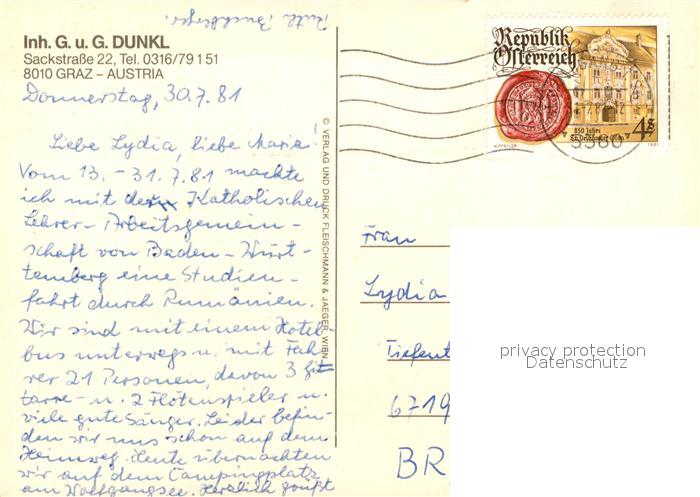 Ruth
Inh. G. u. G. DUNKL
Sackstraße 22, Tel. 0316/79 1 51
8010 GRAZ – AUSTRIA
Donnerstag, 30.7.81
Liebe Lydia, liebe Maria!
Vom 13. – 31.7.81 machte
ich mit der Katholischen
Lehrer-Arbeitsgemein-
schaft von Baden-Würt-
temberg eine Studien-
fahrt durch Rumänien.
Wir sind mit einem Hotel-
bus unterwegs u. mit Fah-
rer 21 Personen, davon 3 Git-
tarre- u. 2 Flötenspieler u.
viele gute Sänger. Leider befin-
den wir uns schon auf dem
Heimweg. Heute übernachten
wir auf dem Campingplatz
am Wolfgangsee. Herzlich grüßt
© VERLAG UND DRUCK FLEISCHMANN & JAEGER, WIEN
Republik
Österreich
850 Jahre
4 S
1981
Frau
Lydia
Tiefent
6719
BR
privacy protection
Datenschutz